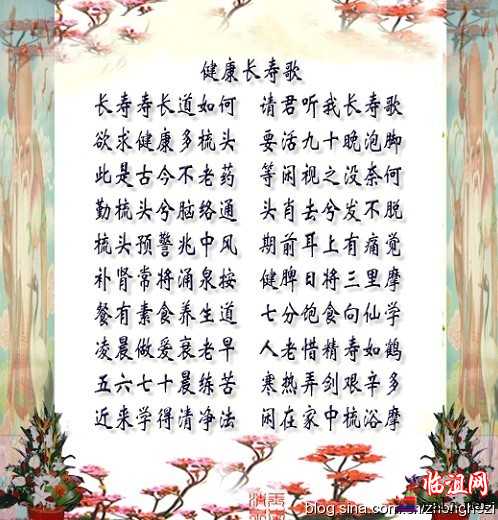 健康长寿歌
长寿寿长道如何 请君听我长寿歌
欲求健康多梳头 要活九十晚泡脚
此是古今不老药 等闲视之没奈何
勤梳头兮脑络通 头肖去兮发不脱
梳头预警兆中风 期前耳上有痛觉
补肾常将涌泉按 健脾日将三里摩
餐有素食养生道 七分饱食向仙学
凌晨做爱衰老早 人老惜精寿如鹤
五六七十晨练苦 寒热弄剑艰辛多
近来学得清净法 闲在家中梳浴摩
临沮网